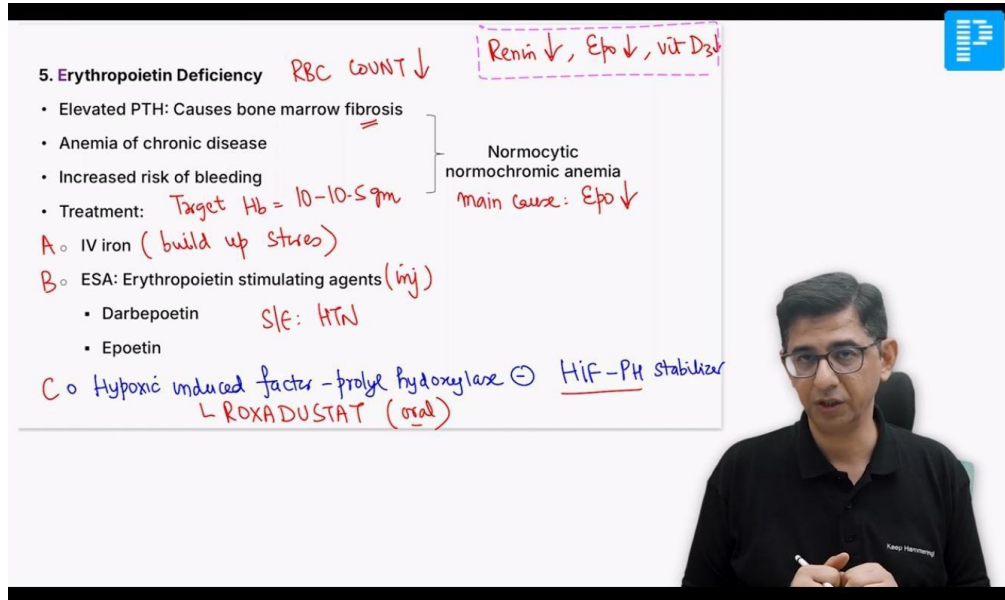 Renin ↓, Epo ↓, vit D3↓
5. Erythropoietin Deficiency RBC COUNT ↓
• Elevated PTH: Causes bone marrow fibrosis
• Anemia of chronic disease
• Increased risk of bleeding
Normocytic
normochromic anemia
main cause: Epo ↓
• Treatment: Target Hb = 10-10.5gm
A ○ IV iron (build up stores)
B ○ ESA: Erythropoietin stimulating agents (inj)
▪ Darbepoetin
S/E: HTN
▪ Epoetin
C ○ Hypoxic induced factor - prolyl hydoxylase ⊖ HiF-PH stabilizer
ROXADUSTAT (oral)
Keep Hammering!
P